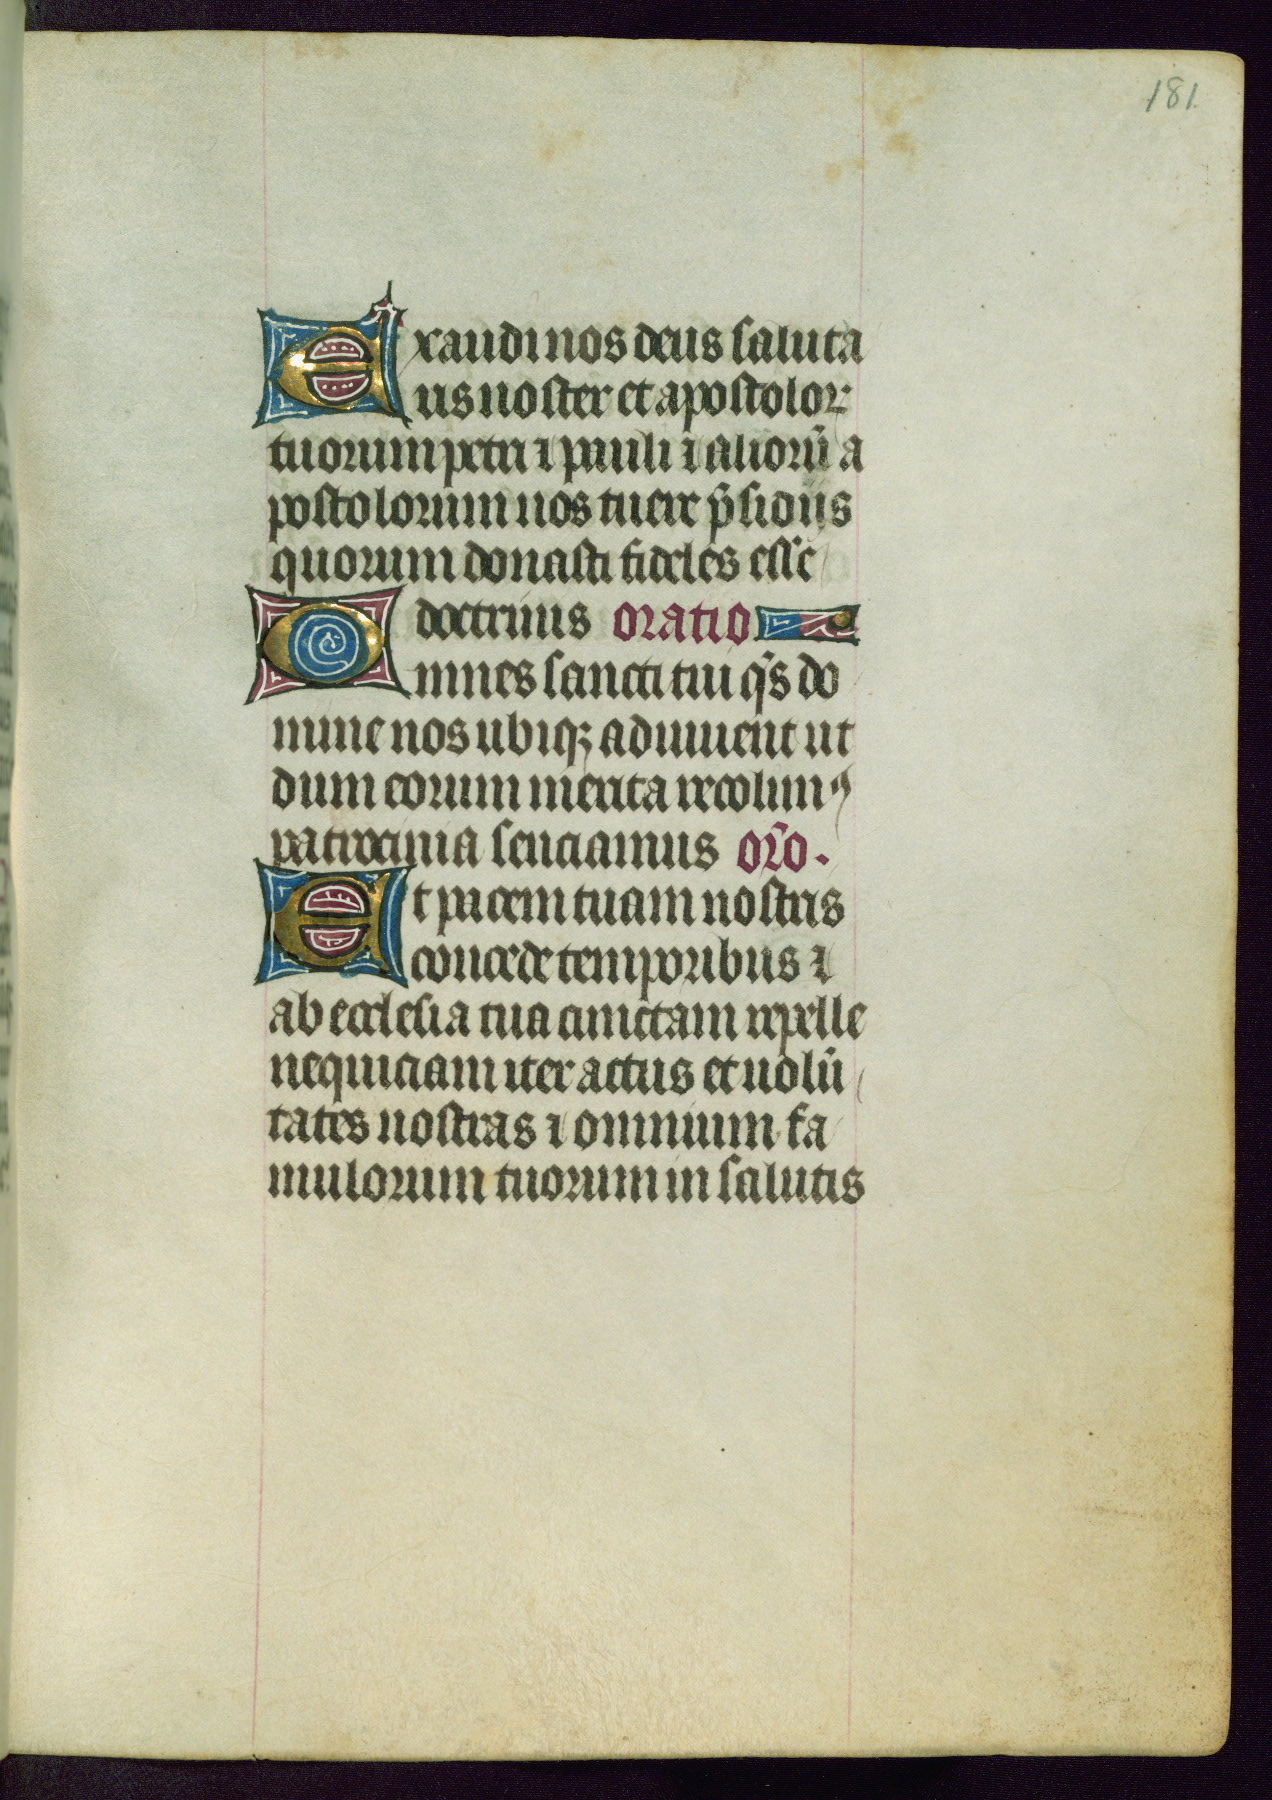 181
Exaudi nos deus saluta
us noster et apostolor
tuorum petri ⁊ pauli ⁊ aliorū a
postolorum nos tuere p̄sidiis
quorum donasti fideles esse
doctrinis oratio
Omnes sancti tui qs̄ do
mine nos ubiqꝫ adiuuent ut
dum eorum merita recolimꝯ
patrocinia senciamus or̄o.
Et pacem tuam nostris
concede temporibus ⁊
ab ecclesia tua cunctam repelle
nequiciam iter actus et uolū
tates nostras ⁊ omnium fa
mulorum tuorum in salutis